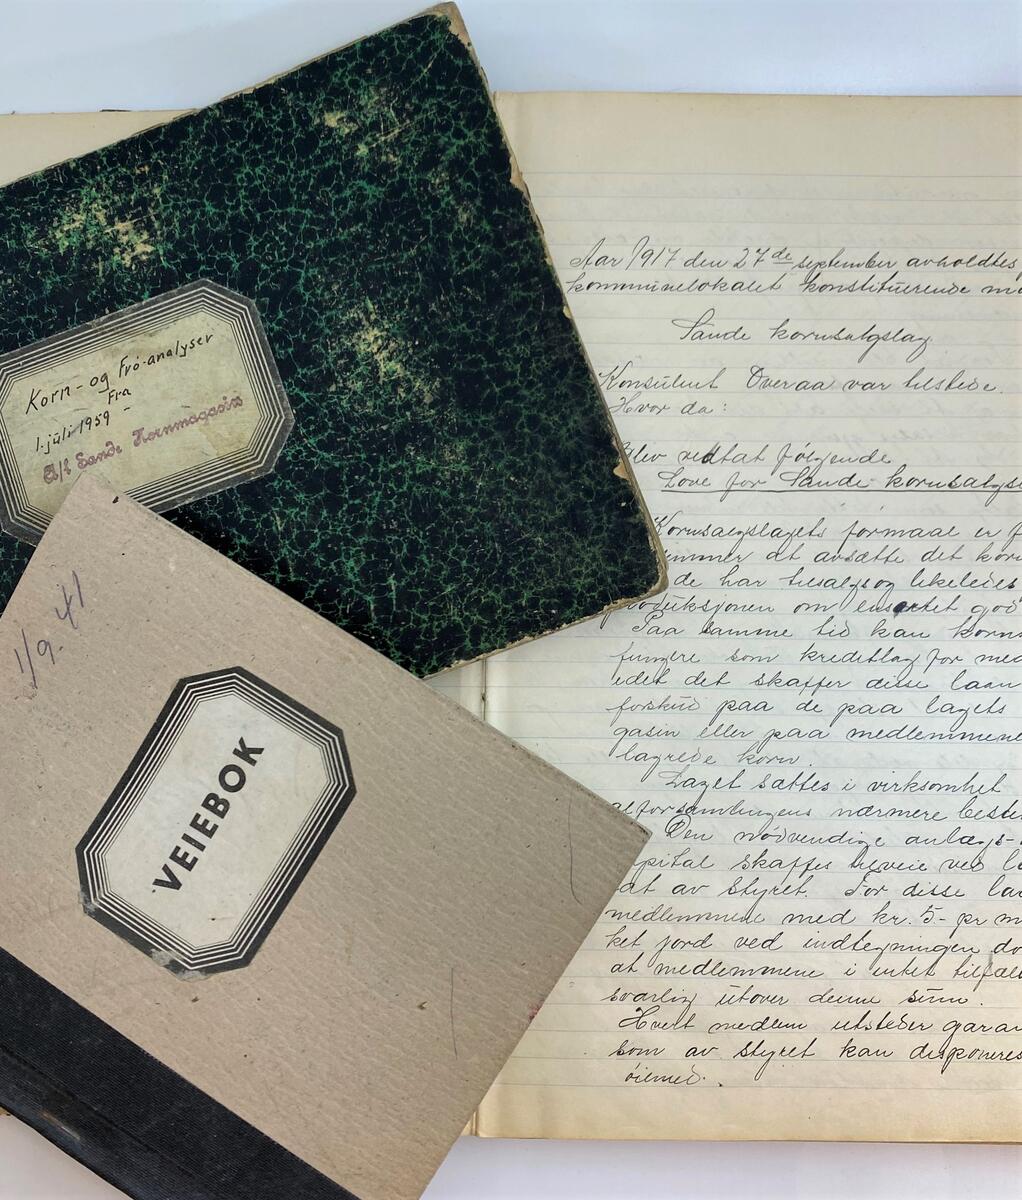 Korn- og Frö-analyser
Fra
1. juli 1959 -
A/L Sande Kornmagasin
1/9. 41
VEIEBOK
Aar 1917 den 27de september avholdtes
kommunelokalet konstituerende
Sande kornsalgslag
Konsulent Overaa var tilstede.
Hvor da:
Blev vedtat følgende
Love for Sande kornsalgs
Kornsalgslagets formaal er
at avsætte det korn
de har tilsalgs og likeledes
produksjonen om ensartet god
Paa samme tid kan korns
fungere som kreditlag for med
edet det skaffer disse laan
forskud paa de paa lagets
gasin eller paa medlemmene
lagrede korn.
Laget sættes i virksomhet
alforsamlingens nærmere beste
Den nödvendige anlægs-
pital skaffes tilveie ved
at av styret. For disse
medlemmene med kr. 5- pr
ket jord ved indtegningen
at medlemmene i intet tilfæl
svarlig utover denne sum.
Hvert medlem utsteder garan
som av styret kan disponeres
öiemed.